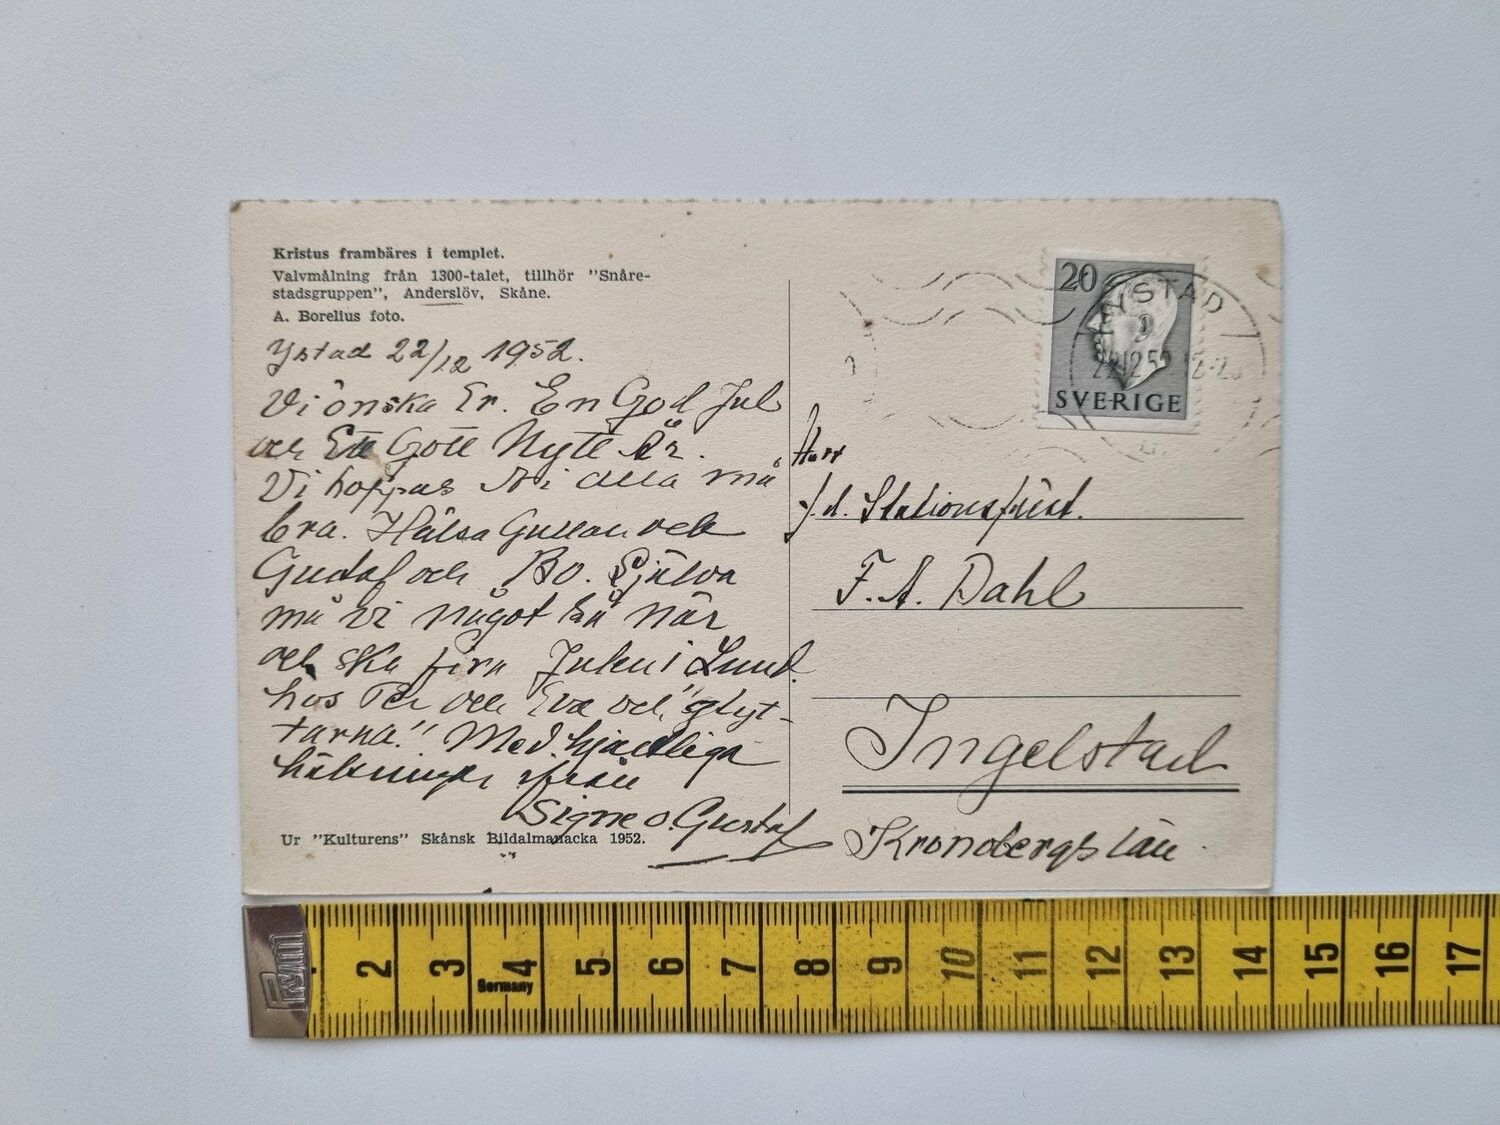 Kristus frambäres i templet.
Valvmålning från 1300-talet, tillhör "Snåre-
stadsgruppen", Anderslöv, Skåne.
A. Borelius foto.
Ystad 22/12 1952.
Vi önska Er. En God Jul
och Ett Gott Nytt År.
Vi hoppas Ni alla må
bra. Hälsa Gullan och
Gustaf och Bo. Själva
må vi något så när
och ska fira Julen i Lund.
hos Per och Eva och "glyt-
tarna". Med hjärtliga
hälsningar från
Signe o. Gustaf
Ur "Kulturens" Skånsk Bildalmanacka 1952.
20
SVERIGE
YSTAD
22.12.52
Herr
f.d. Stationsförest.
F. A. Dahl
Ingelstad
Kronobergs län
prym
2 3 4 5 6 7 8 9 10 11 12 13 14 15 16 17
Germany